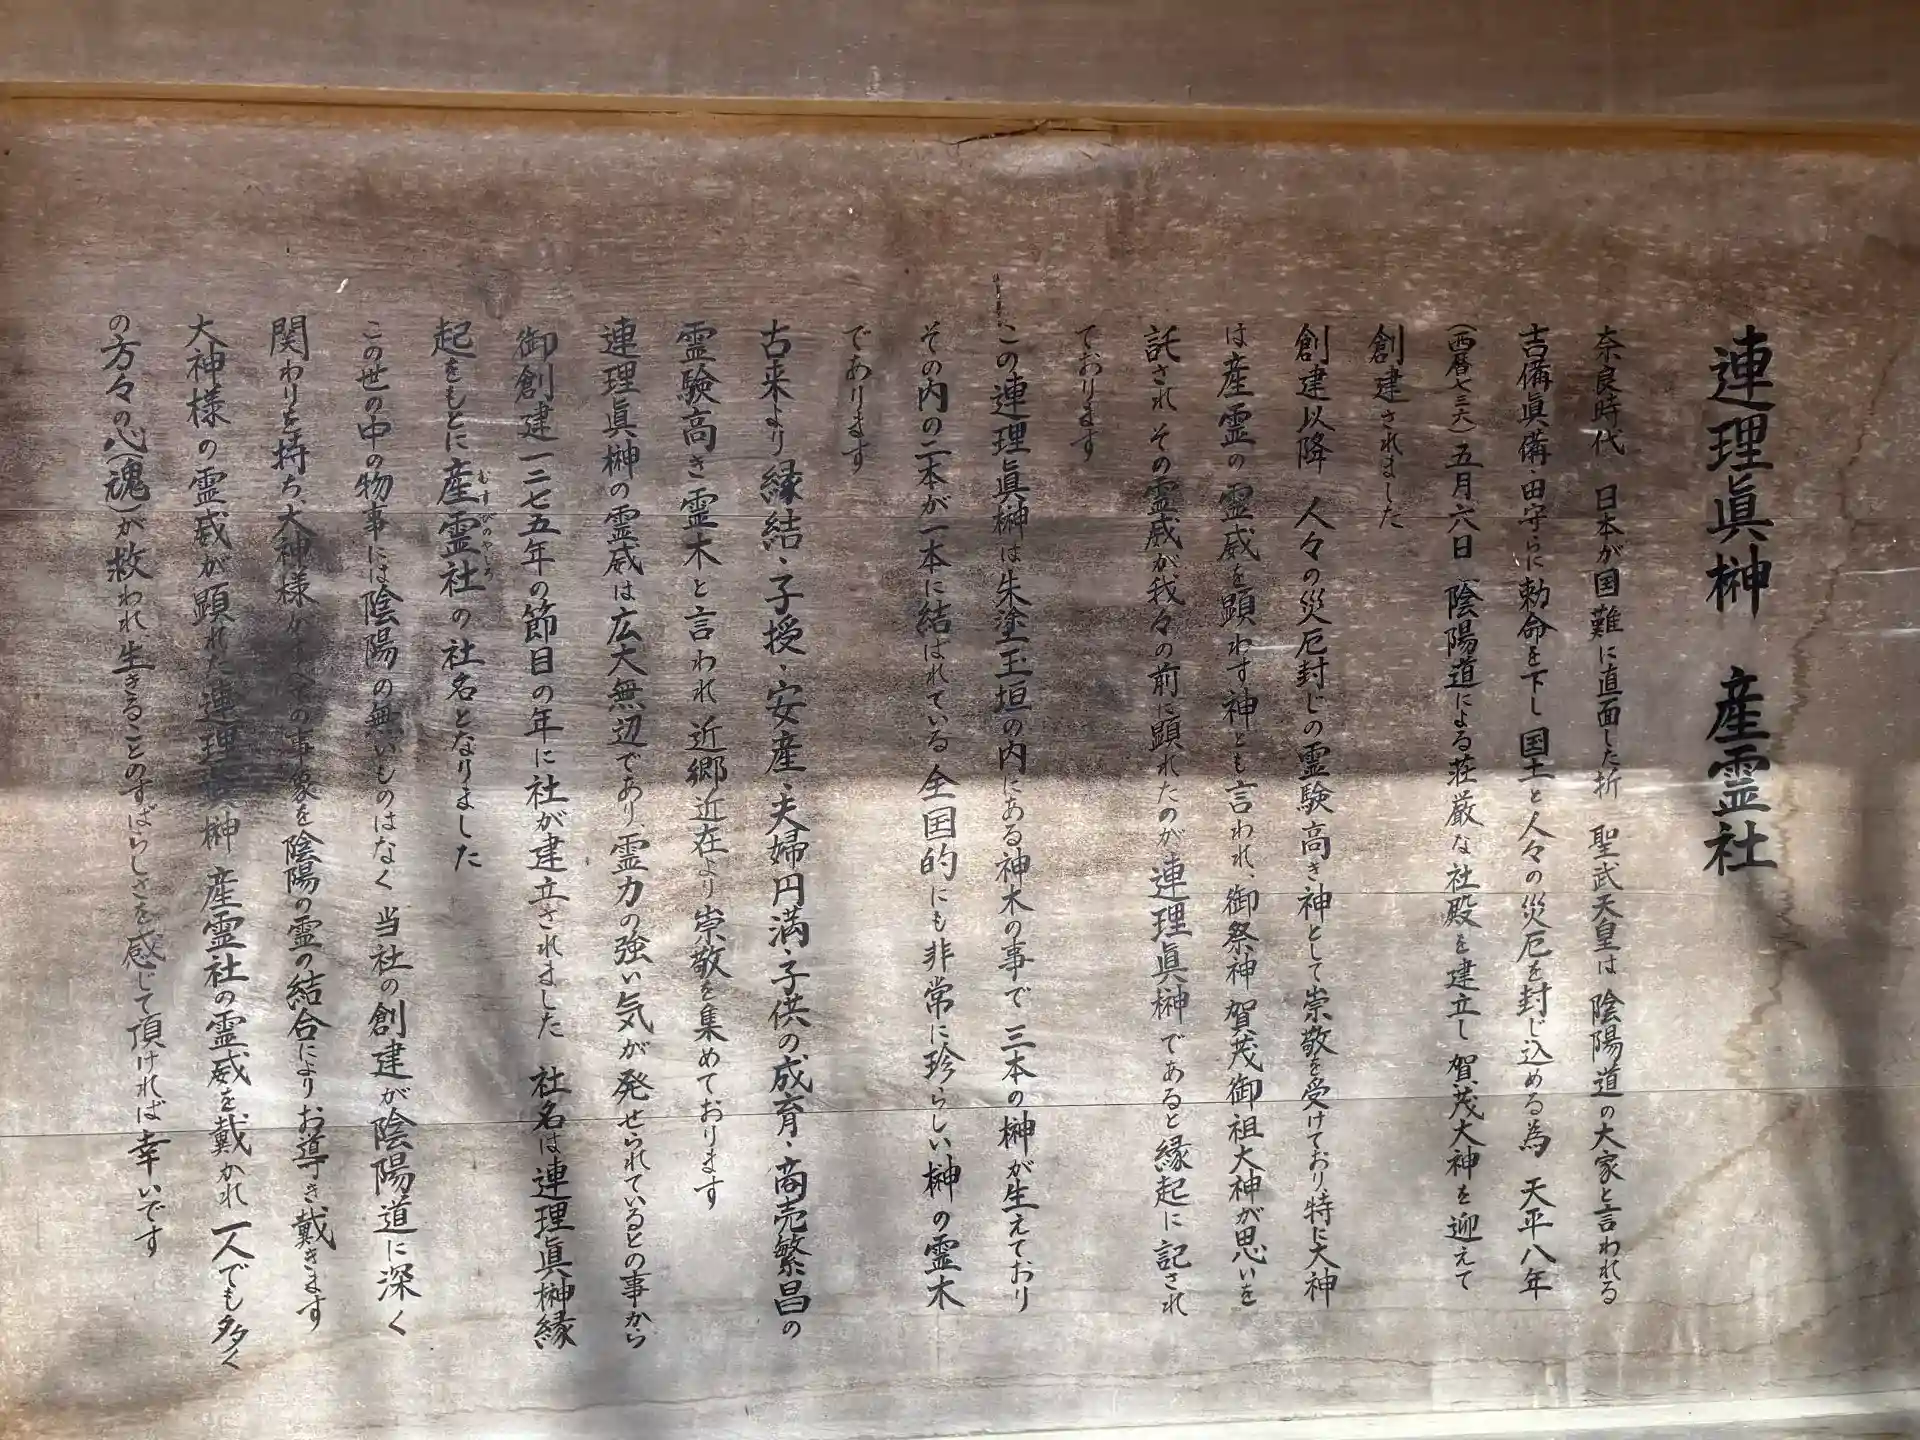 連理眞榊 産霊社
奈良時代 日本が国難に直面した折 聖武天皇は陰陽道の大家と言われる
吉備眞備・由守らに勅命を下し国土と人々の災厄を封じ込める為 天平八年
(西暦七三六)五月六日 陰陽道による荘厳な社殿を建立し賀茂大神を迎えて
創建されました
創建以降 人々の災厄封じの霊験高き神として崇敬を受けており特に大神
は産霊の霊威を顕わす神とも言われ、御祭神 賀茂御祖大神が思いを
託され その霊威が我々の前に顕れたのが連理眞榊であると縁起に記され
ております
この連理眞榊は朱塗玉垣の内にある神木の事で 三本の榊が生えており
その内の二本が一本に結ばれている全国的にも非常に珍らしい榊の霊木
であります
古来より縁結・子授・安産・夫婦円満・子供の成育・商売繁昌の
霊験高き霊木と言われ近郷近在より崇敬を集めております
連理眞榊の霊威は広大無辺であり霊力の強い気が発せられているとの事から
御創建一二七五年の節目の年に社が建立されました 社名は連理眞榊縁
起をもとに産霊社の社名となりました
むすびのやしろ
この世の中の物事には陰陽の無いものはなく 当社の創建が陰陽道に深く
関わりを持ち大神様がの事象を陰陽の霊の結合によりお導き戴きます
大神様の霊威が顕れた連理眞榊 産霊社の霊威を戴かれ一人でも多く
の方々の心(魂)が救われ生きることのすばらしさを感じて頂ければ幸いです